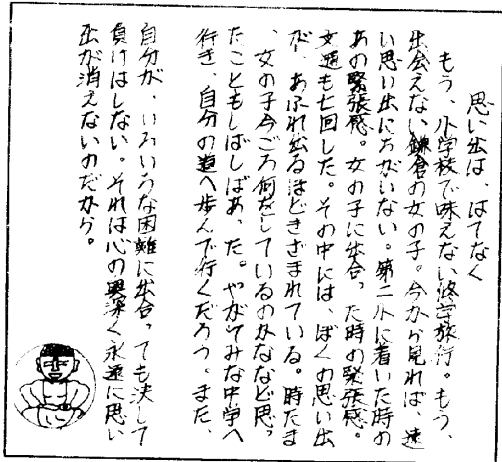 思い出は、はてなく
もう、小学校で味えない修学旅行。もう、
出会えない鎌倉の女の子。今から見れば、遠
い思い出にちがいない。第二小に着いた時の
あの緊張感。女の子に出合った時の緊張感。
文通も七回した。その中には、ぼくの思い出
が、あふれ出るほどきざまれている。時たま
、女の子今ごろ何をしているのかななど思っ
たこともしばしばあった。やがてみな中学へ
行き、自分の道へ歩んで行くだろう。また、
自分が、いろいろな困難に出合っても決して
負けはしない。それは心の奥深く永遠に思い
出が消えないのだから。